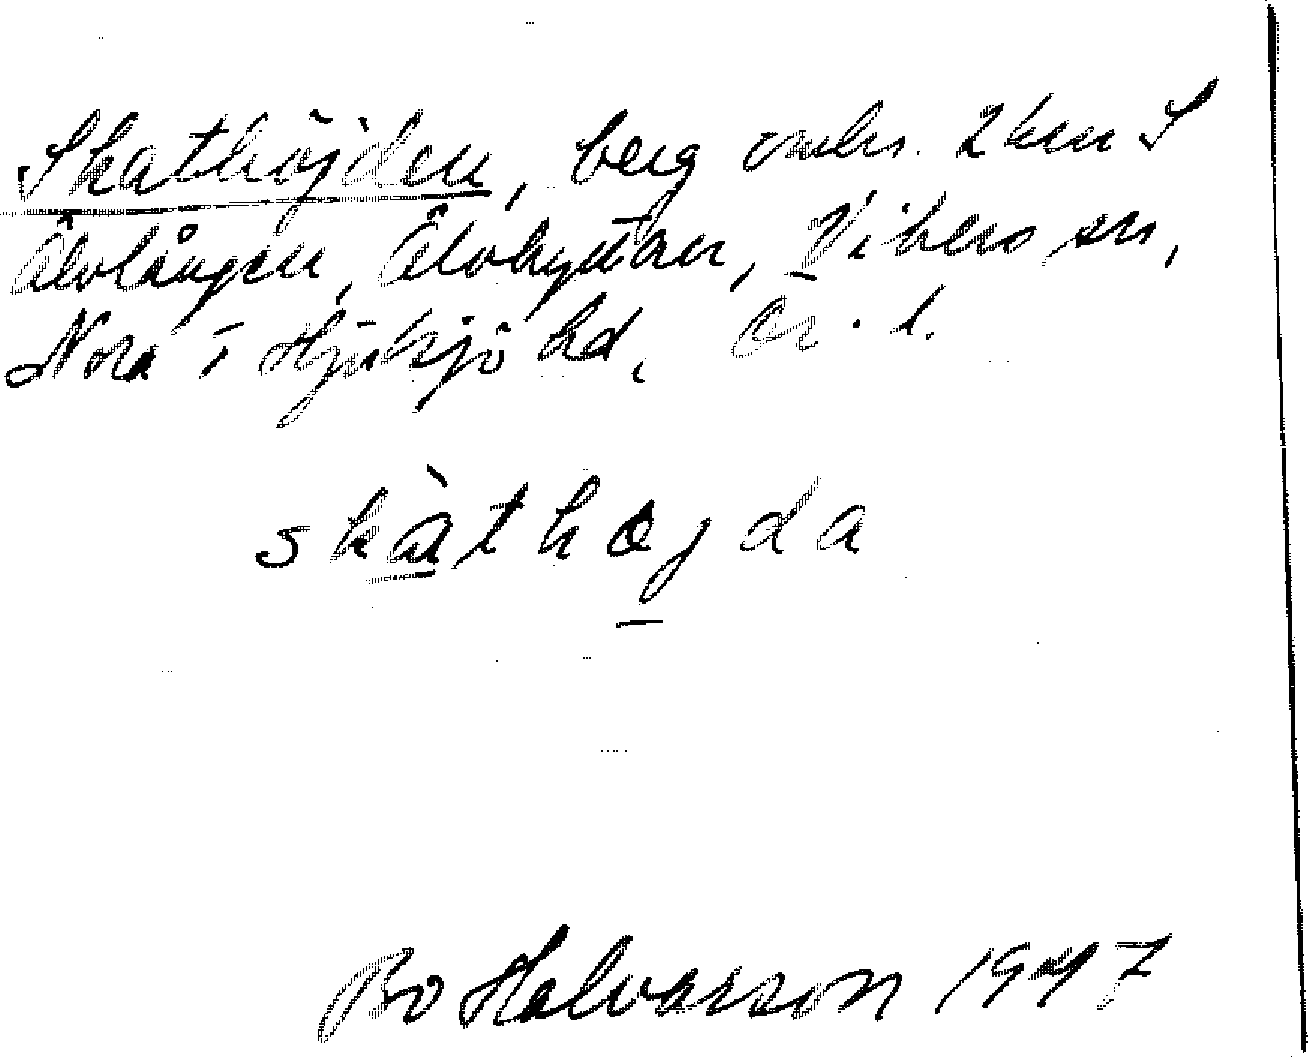 Skathöjden, berg omkr. 2 km S
Älvlången, Älvhyttan, Vikers sn,
Nora o Hjulsjö hd, Ör. l.
skàthøjda
Bo Halvarson 1947